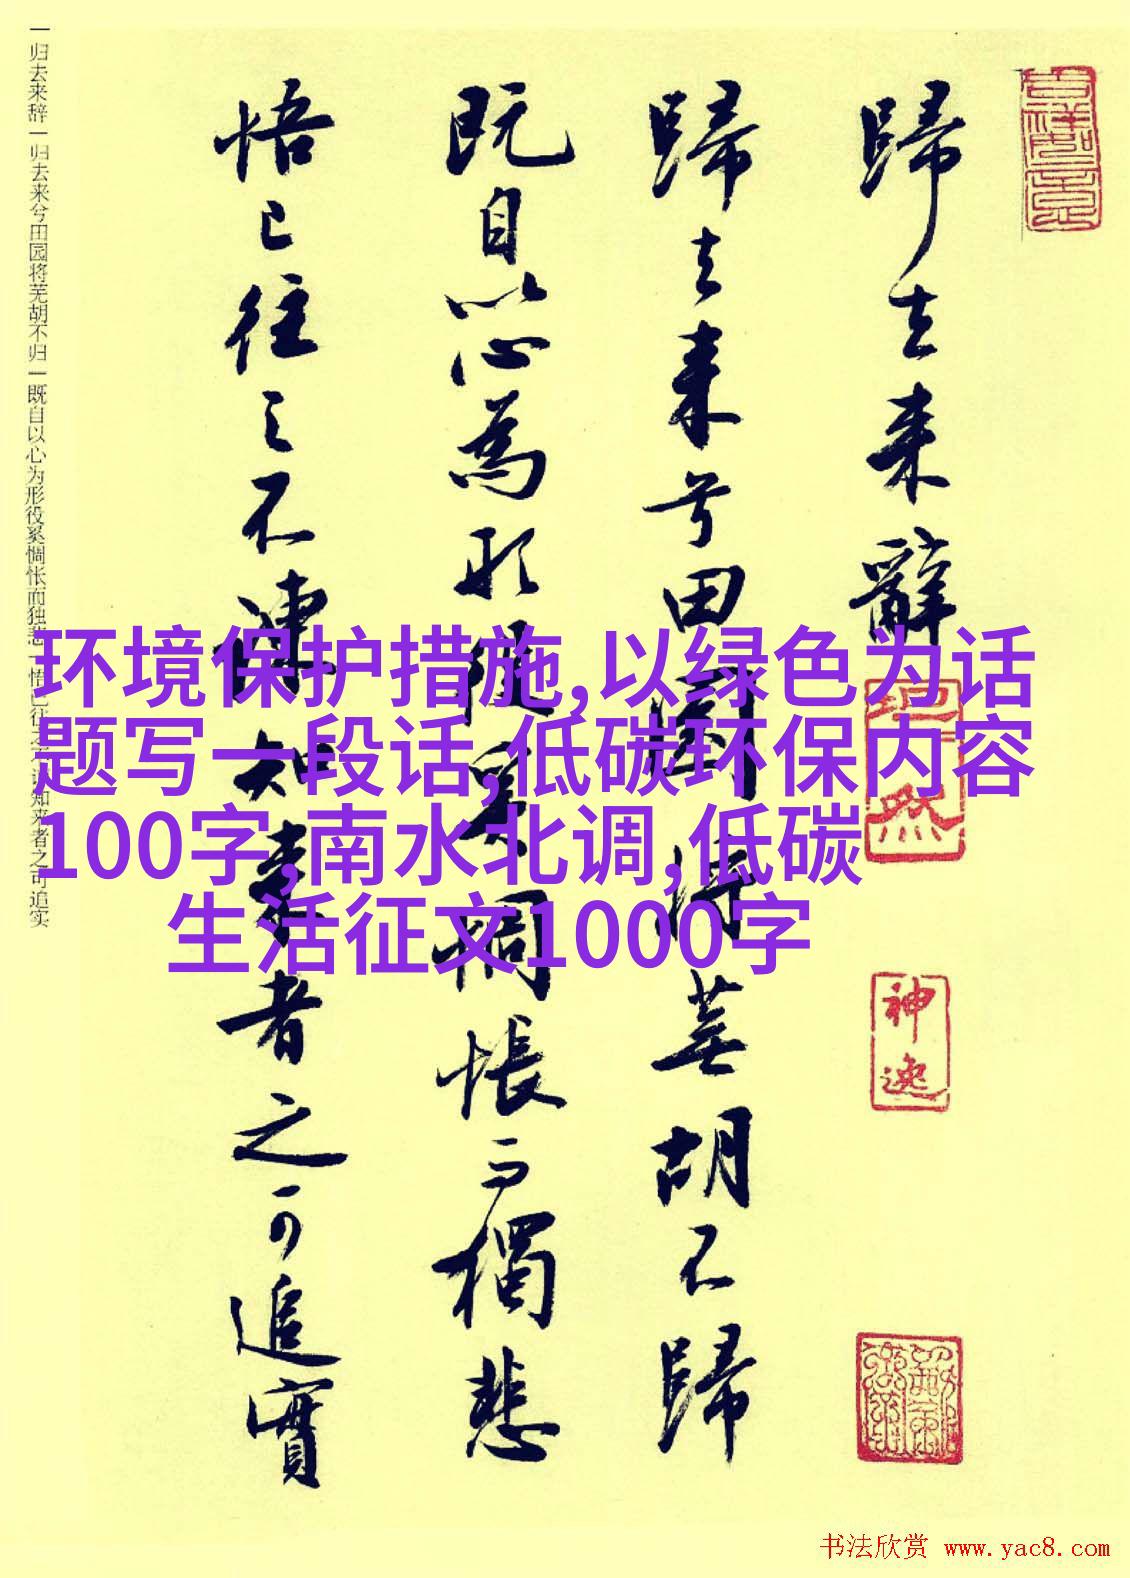 归去来辞
归去来兮田园将芜胡不归
既自以心为形役奚惆怅而独悲
歸去来辭
歸去来兮田園将芜胡不歸
既自以心為形役奚惆悵而獨悲
悟已往之不諫知来者之可追實
环境保护措施,以绿色为话
题写一段话,低碳环保内容
100字,南水北调,低碳
生活征文1000字
神逸
书法欣赏 www.yac8.com